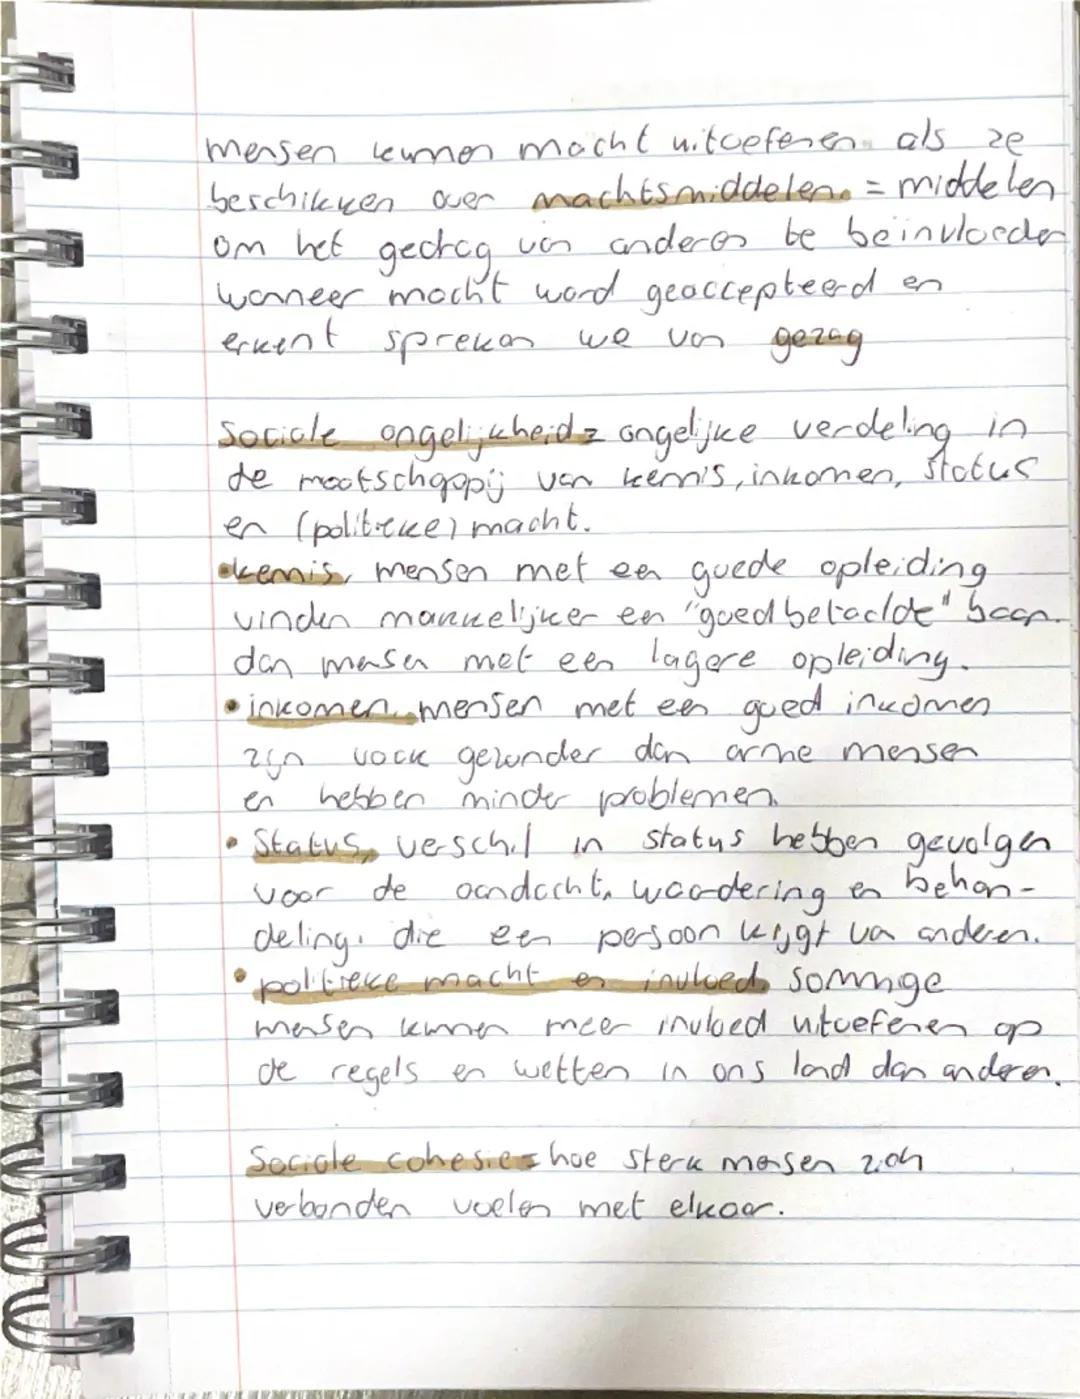 mensen kunnen macht uitoefenen als ze
beschikken over machtsmiddelen. = middelen
om het gedrag van anderen te beïnvloeden
wanneer macht word geaccepteerd en
erkent spreken we van gezag
Sociale ongelijkheid = ongelijke verdeling in
de maatschappij van kennis, inkomen, status
en (politieke) macht.
• kennis, mensen met een goede opleiding
vinden makkelijker een "goed betaalde" baan.
dan mensen met een lagere opleiding.
• inkomen, mensen met een goed inkomen
zijn vaak gezonder dan arme mensen
en hebben minder problemen.
• Status, verschil in status hebben gevolgen
voor de aandacht, waardering en behan-
deling, die een persoon krijgt van anderen.
• politieke macht en invloed, sommige
mensen kunnen meer invloed uitoefenen op
de regels en wetten in ons land dan anderen.
Sociale cohesie = hoe sterk mensen zich
verbonden voelen met elkaar.